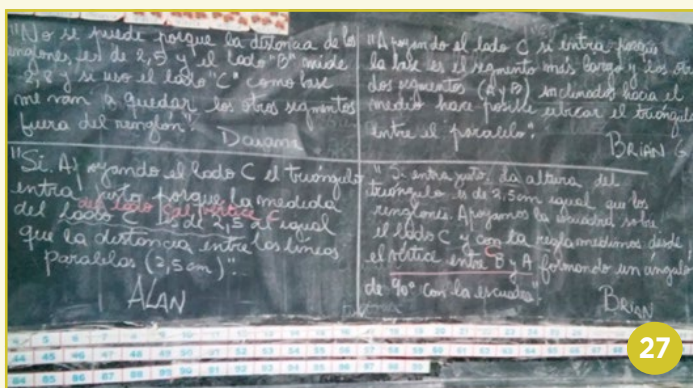 "No se puede porque la distancia de los
renglones es de 2,5 y el lado "B" mide
2,8 y si uso el lado "C" como base
me van a quedar los otros segmentos
fuera del renglón".
Daiana
"Apoyando el lado C si entra porque
la base es el segmento más largo y los otros
dos segmentos (A y B) inclinados hacia el
medio hace posible ubicar el triángulo
entre el paralelo".
BRIAN G
"Si. Apoyando el lado C el triángulo
entra justo porque la medida
del lado C al vértice C
del lado es de 2,5 al igual
que la distancia entre las líneas
paralelas (2,5 cm)".
ALAN
"Si entra justo, la altura del
triángulo es de 2,5cm igual que los
renglones. Apoyamos la escuadra sobre
el lado C y con la regla medimos desde
C
el vértice entre B y A formando un ángulo
de 90° con la escuadra".
BRIAN
5 6 7 8 9 10
44 45 46 47 48 49 50 51 52 53 54 55 56 57 58 59 60 61 62 63 64 65 66
84 85 86 87 88 89 90 91 92 93 94 95 96 97 98 99
27